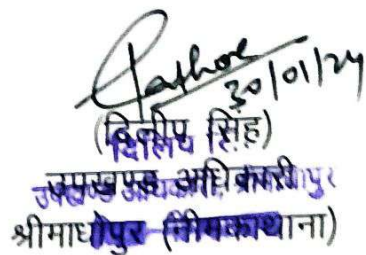 Rathore
30/01/24
(दिलीप सिंह)
उपखण्ड अधिकारी
श्रीमाधोपुर (नीमकाथाना)